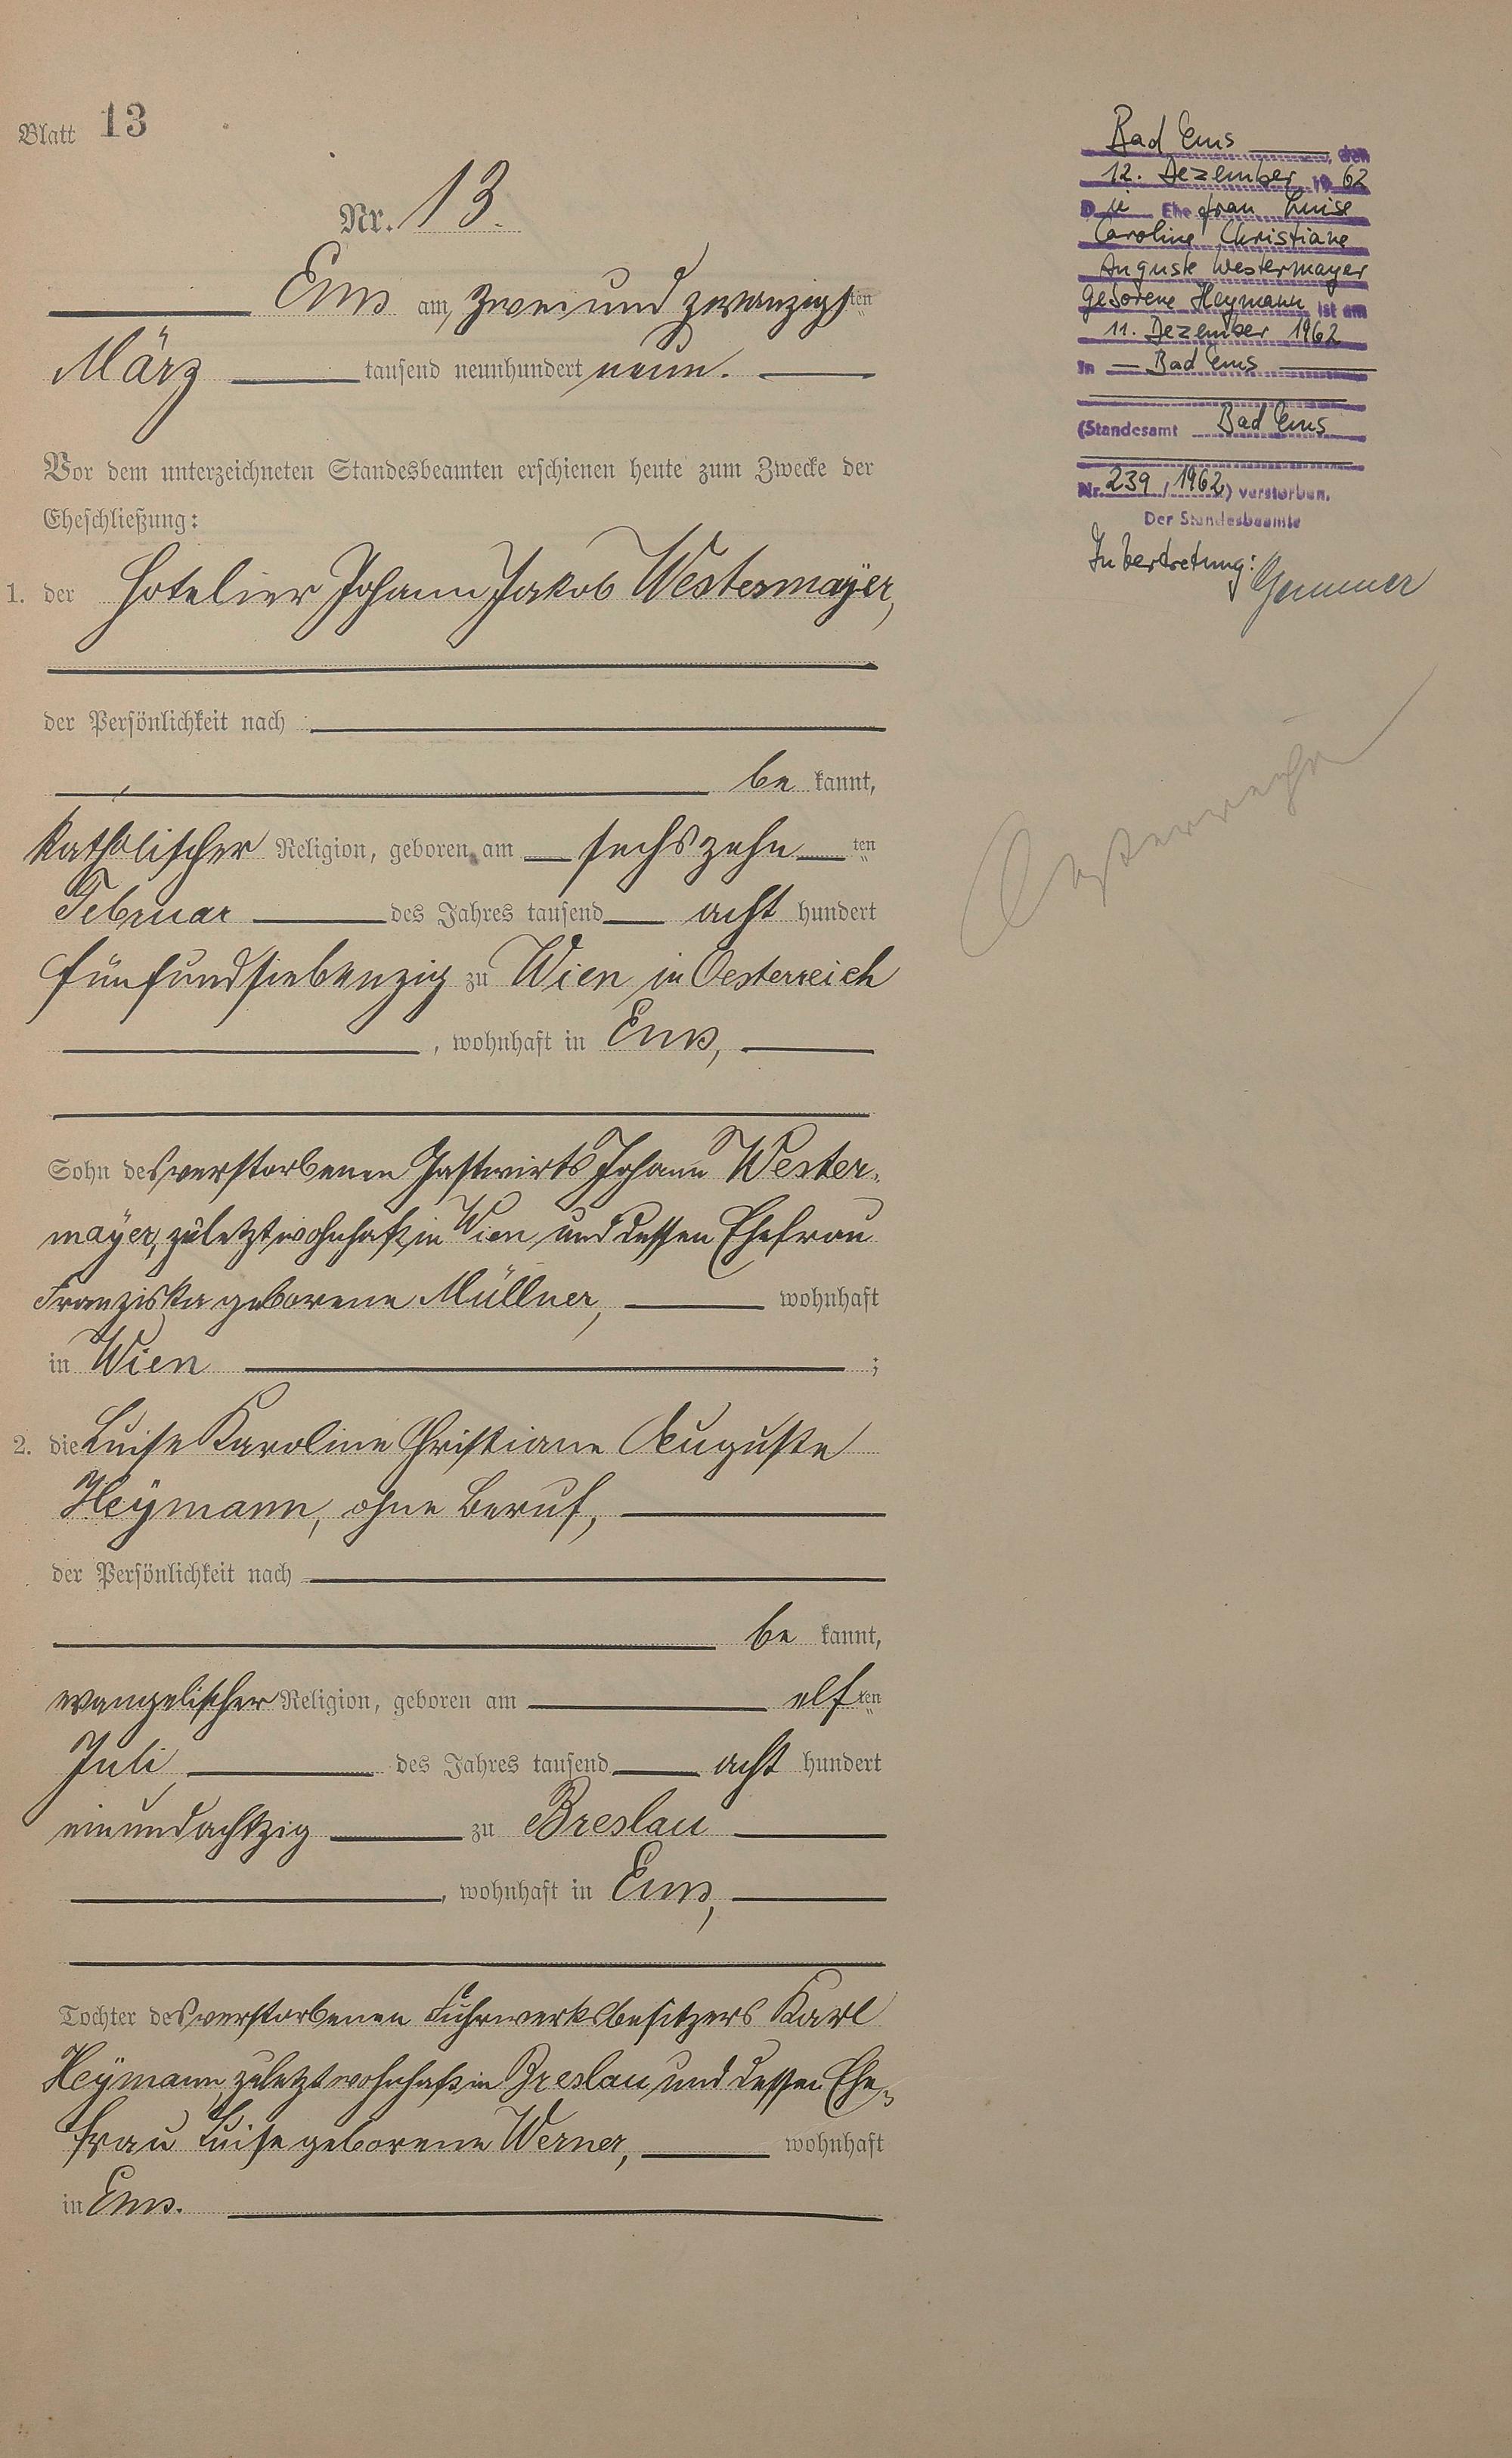 Blatt 13
Nr. 13.
Ems am zwei und zwanzigsten
März tausend neunhundert neun.
Vor dem unterzeichneten Standesbeamten erschienen heute zum Zwecke der
Eheschließung:
1. der Hotelier Johann Jakob Westermayer,
der Persönlichkeit nach
be kannt,
katholischer Religion, geboren am sechszehn ten
Februar des Jahres tausend acht hundert
fünfundsiebenzig zu Wien in Oesterreich
, wohnhaft in Ems,
Sohn des verstorbenen Gastwirts Johann Wester-
mayer, zuletzt wohnhaft in Wien und dessen Ehefrau
Franziska geborene Müllner, wohnhaft
in Wien ;
2. die Luise Karoline Christiane Auguste
Heymann, ohne Beruf,
der Persönlichkeit nach
be kannt,
evangelischer Religion, geboren am elf ten
Juli des Jahres tausend acht hundert
einundachtzig zu Breslau
, wohnhaft in Ems,
Tochter des verstorbenen Fuhrwerksbesitzers Karl
Heymann, zuletzt wohnhaft in Breslau und dessen Ehe-
frau Luise geborene Werner, wohnhaft
in Ems.
Bad Ems, den
12. Dezember 1962
Die Ehefrau Luise
Caroline Christiane
Auguste Westermayer
geborene Heymann ist am
11. Dezember 1962
in Bad Ems
(Standesamt Bad Ems
Nr. 239/1962) verstorben.
Der Standesbeamte
In Vertretung: